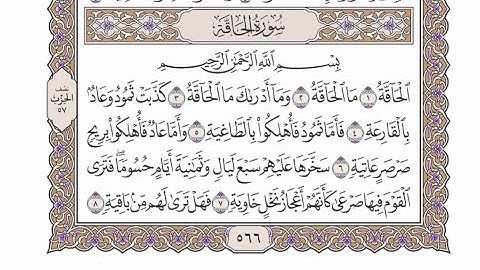 سُورَةُ الْحَاقَّةِ
بِسْمِ اللَّهِ الرَّحْمَٰنِ الرَّحِيمِ
الْحَاقَّةُ ١ مَا الْحَاقَّةُ ٢ وَمَا أَدْرَاكَ مَا الْحَاقَّةُ ٣ كَذَّبَتْ ثَمُودُ وَعَادٌ
بِالْقَارِعَةِ ٤ فَأَمَّا ثَمُودُ فَأُهْلِكُوا بِالطَّاغِيَةِ ٥ وَأَمَّا عَادٌ فَأُهْلِكُوا بِرِيحٍ
صَرْصَرٍ عَاتِيَةٍ ٦ سَخَّرَهَا عَلَيْهِمْ سَبْعَ لَيَالٍ وَثَمَٰنِيَةَ أَيَّامٍ حُسُومًا فَتَرَى
الْقَوْمَ فِيهَا صَرْعَىٰ كَأَنَّهُمْ أَعْجَازُ نَخْلٍ خَاوِيَةٍ ٧ فَهَلْ تَرَىٰ لَهُم مِّنۢ بَاقِيَةٍ ٨
نصف
الحزب
٥٧
٥٦٦